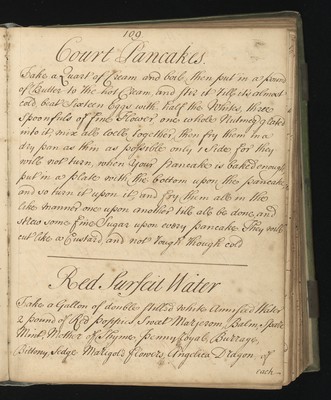 109
Court Pancakes.
Take a Quart of Cream and boil, then put in a pound
of Butter to the hot Cream, and Stir it till its almost
cold beat Sixteen Eggs with half the Whites, three
Spoonfuls of fine Flower one whole Nutmeg grated
into it, mix all well together, then fry them in a
dry pan as thin as possible only 1 Side for they
will not turn, when Your pancake is baked enough
put in a plate with the bottom upon the pancake
and so turn it upon it, and fry them all in the
like manner one upon another till all be done, and
strew some fine Sugar upon every pancake They will
cut like a Custard and not tough though cold
Red Surfeit Water
Take a Gallon of double still'd white Anniseed Water
2 pound of Red Poppies Sweet Marjerom, Balm, Spare
Mint, Mother of Thyme, penny loyal, Burrage,
Bittony, Sedge Marigold flowers, Angelica Dragon, of
each